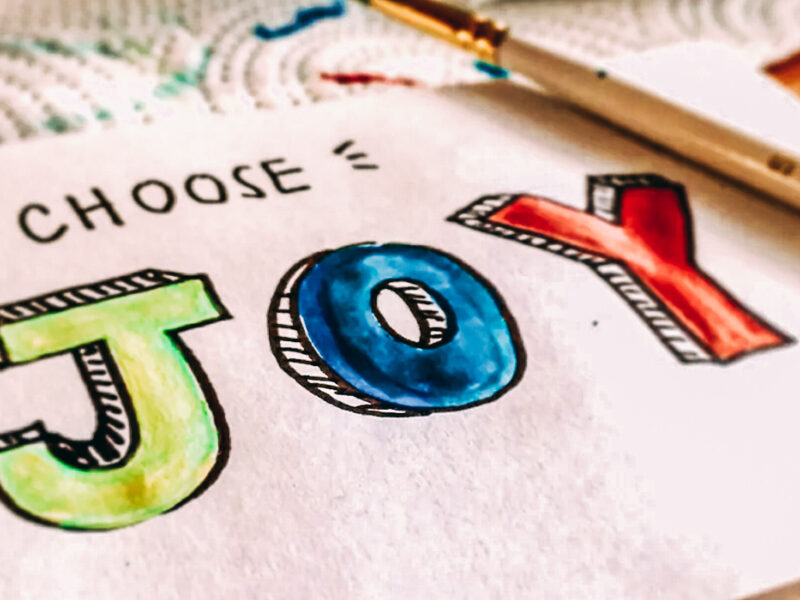 CHOOSE
JOY